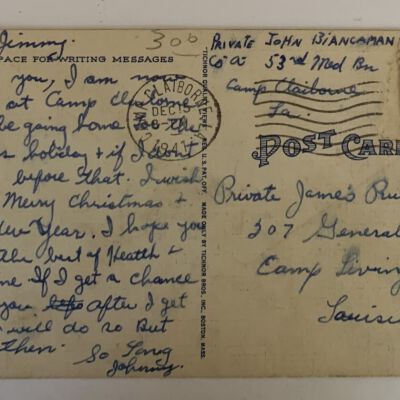 Jimmy.
300
PACE FOR WRITING MESSAGES
you, I am now
at Camp Claiborne
be going home for the
s holiday & if I don't
before that. I wish
Merry Christmas &
New Year. I hope you
the best of Health &
me If I get a chance
you after I get
will do so But
then.
So Long
Johnny.
CLAIBORNE
DEC 15
1941
"TICHNOR QUALITY VIEWS," REG. U. S. PAT. OFF. MADE ONLY BY TICHNOR BROS., INC., BOSTON, MASS.
PRIVATE JOHN BIANCAMAN
Co A 53rd Med Bn
Camp Claiborne
La.
POST CAR
Private James
307 General
Camp Living
Louisi